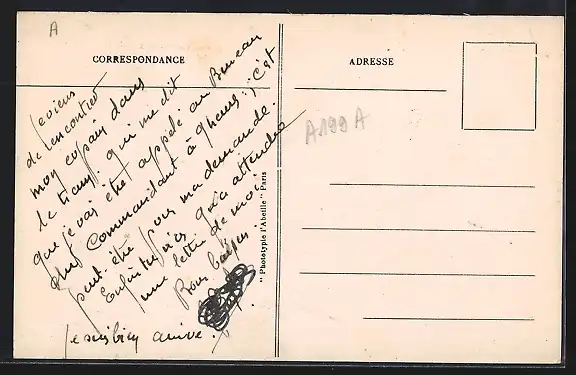 A
CORRESPONDANCE
ADRESSE
Je viens
de rencontrer
mon copain dans
le tram, qui me dit
que je vais être appelé au Bureau
du Commandant à 9 heures ; C'est
peut-être pour ma demande.
Enfin tu n'as qu'à attendre
une lettre de moi.
Bons baisers.
Je suis bien arrivé.
A199A
"Phototypie l'Abeille" Paris